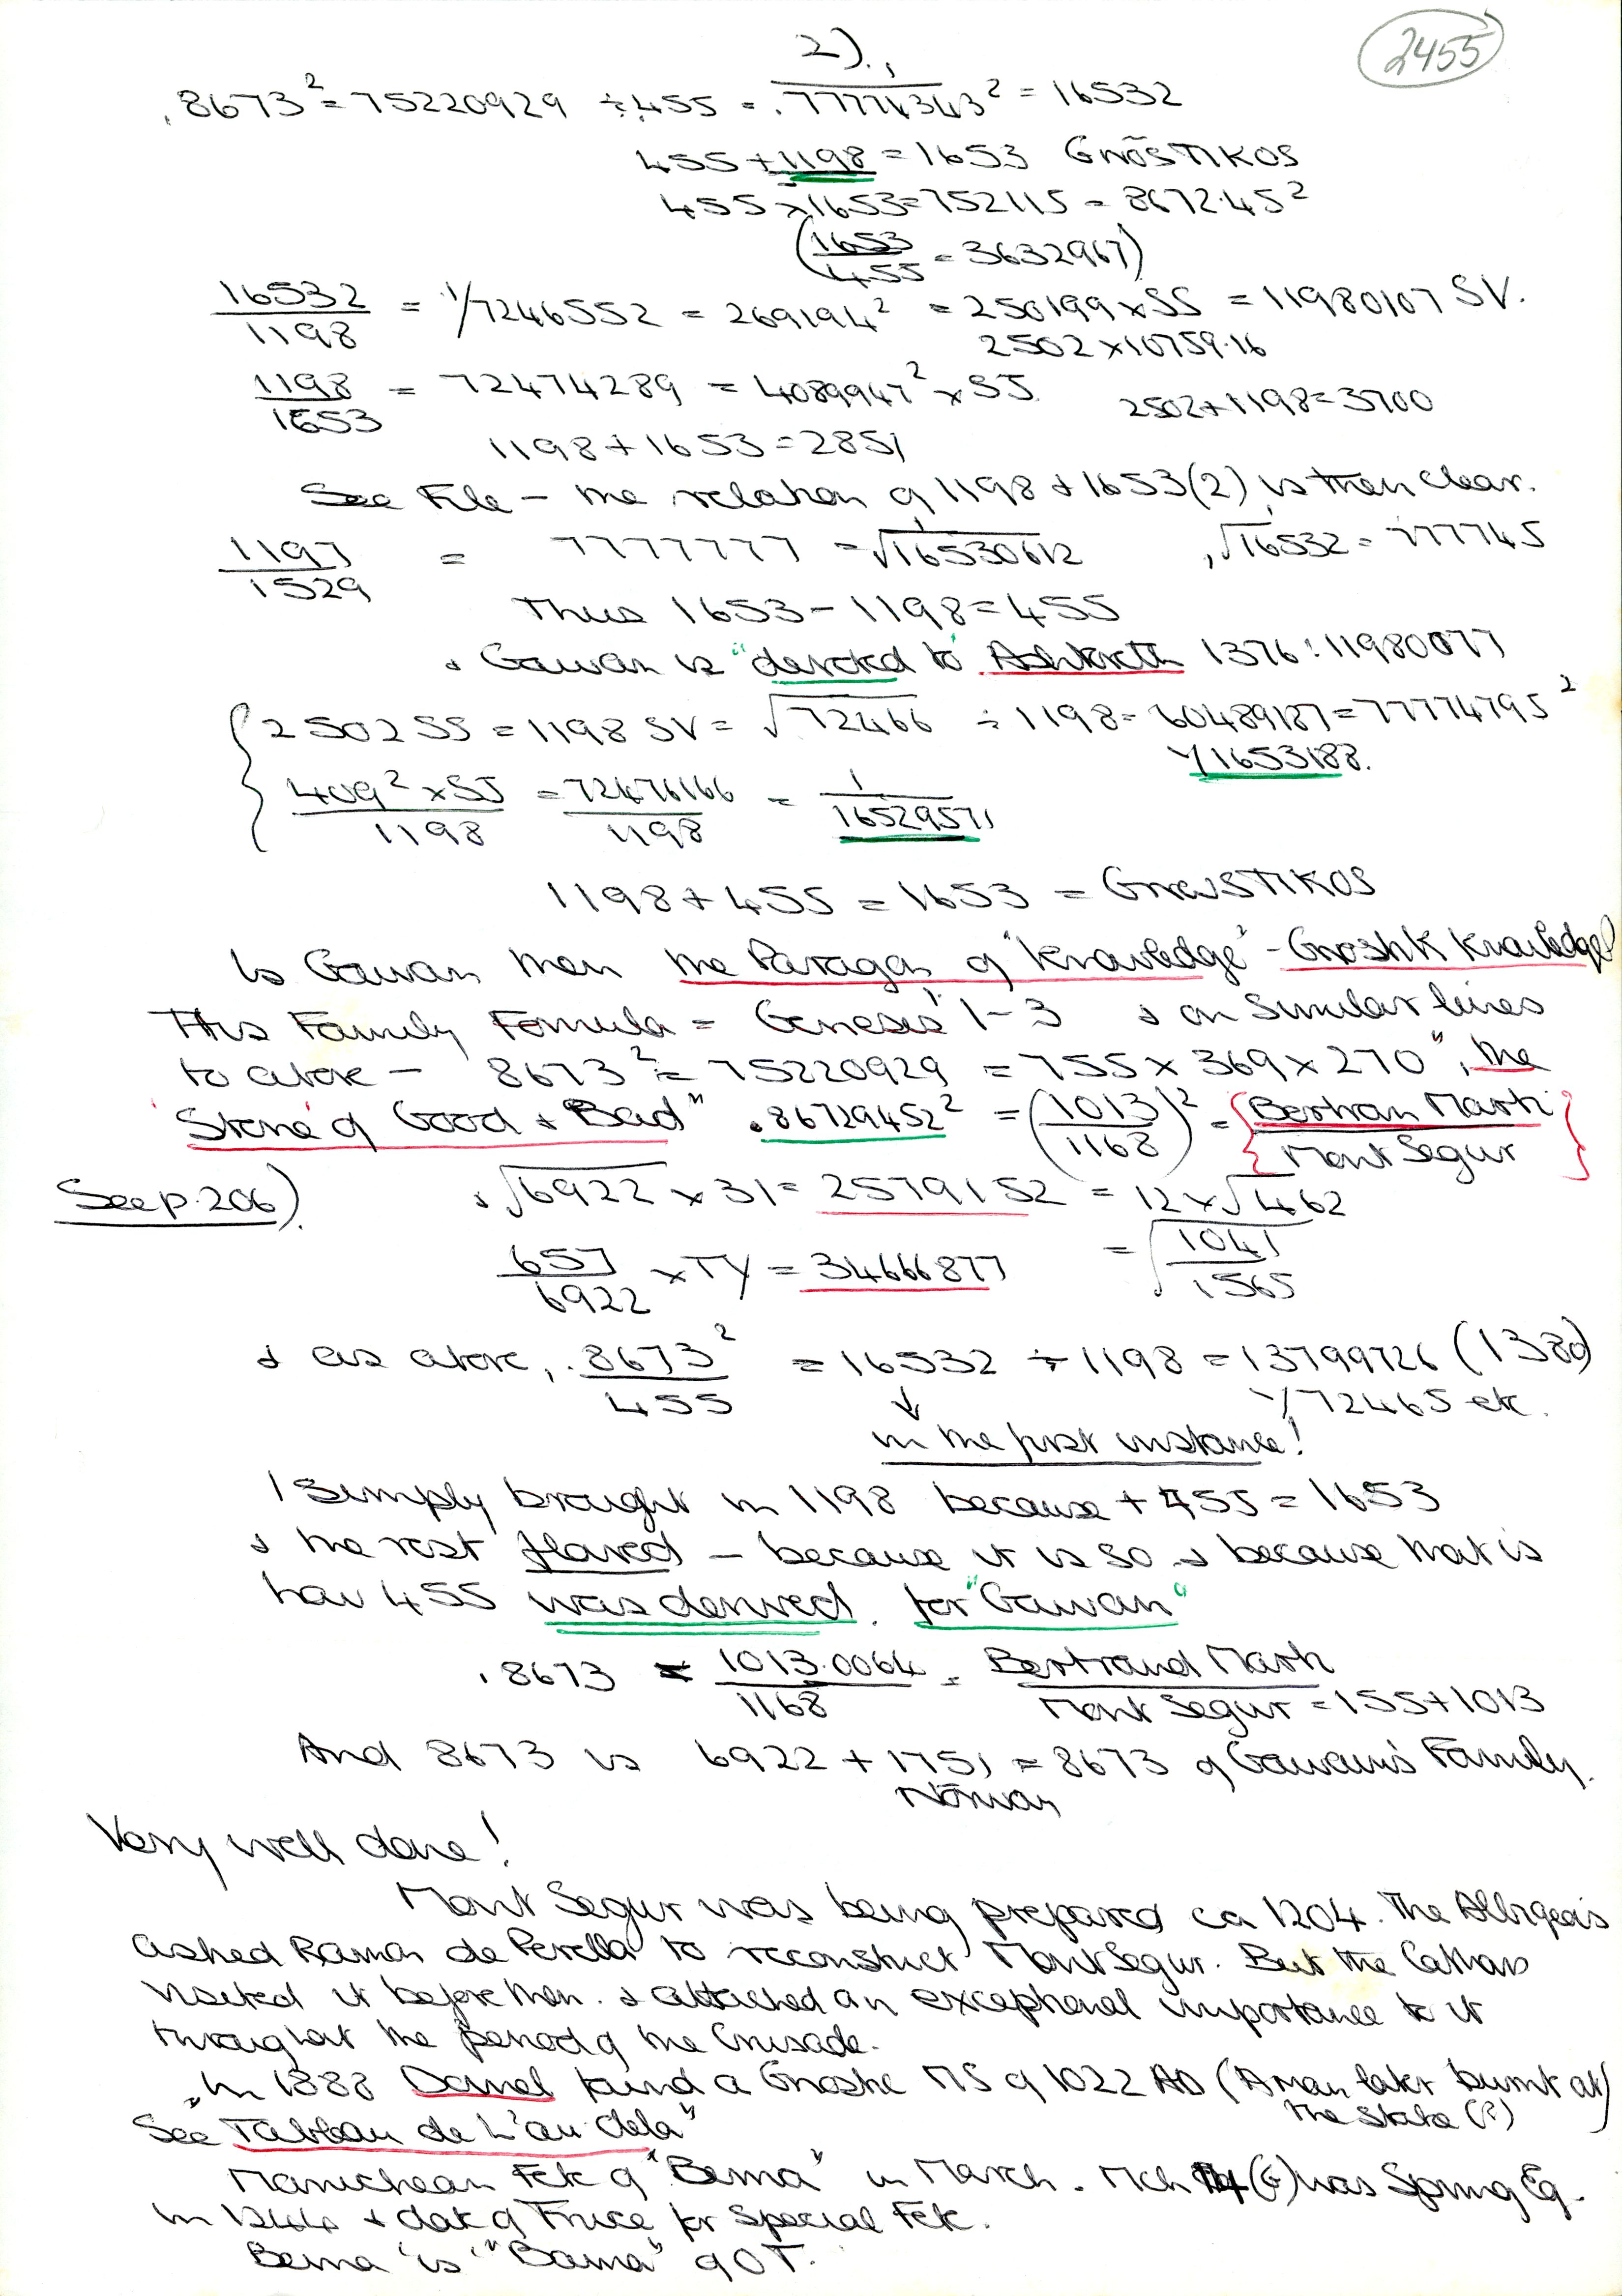 2).
2455
.8673² = 75220929 ÷ .455 = 1/.77774343² = 16532
455 + 1198 = 1653 GNŌSTIKOS
455 × 1653 = 752115 = 8672.45²
(1653/455 = 3632967)
16532/1198 = 1/7246552 = 269194² = 250199 × SS = 11980107 SV.
2502 × 10759.16
1198/1653 = 72474289 = 4089947² × SJ
2502 + 1198 = 3700
1198 + 1653 = 2851
See File - the relation of 1198 + 1653(2) is then clear.
1197/1529 = 7777777 = √16530612 , √16532 = 777745
Thus 1653 - 1198 = 455
& Gawan is "devoted to" Ashtoreth 1376 : 11980077
2502 SS = 1198 SV = √72466 ÷ 1198 = 60489187 = 77774795²
1/1653188.
409² × SJ/1198 = 72476166/1198 = 1/16529571
1198 + 455 = 1653 = GnωSTIKOS
Is Gawan then the Paragon of "Knowledge" - Gnostik Knowledge
This Family Formula = Genesis 1-3 & on similar lines
to above - 8673² = 75220929 = 755 × 369 × 270", the
'Stone' of Good & Bad" .86729452² = (1013/1168)² = {Bertran Marti/Mont Segur}
See p. 206)
& √6922 × 31 = 2579152 = 12 × √462
657/6922 × TY = 34666877 = √1041/1565
& as above, .8673²/455 = 16532 ÷ 1198 = 13799726 (1380)
1/72465 etc.
in the first instance!
I simply brought in 1198 because + 455 = 1653
& the rest flared - because it is so & because that is
how 455 was derived. for "Gawan"
.8673 = 1013.0064/1168 = Bertrand Marti/Mont Segur = 155 + 1013
And 8673 is 6922 + 1751 = 8673 of Gawan's Family.
Very well done!
Mont Segur was being prepared ca 1204. The Albigeois
asked Ramon de Perella to reconstruct Mont Segur. But the Cathars
visited it before then. & attached an exceptional importance to it
throughout the period of the Crusade.
"In 1888 Doinel found a Gnostic MS of 1022 AD (A man later burnt at
the stake (?)
See Tableau de L'au-dela"
Manichean Fete of "Bema" in March. Mch 14 (G) was Spring Eq.
in 1244 & date of Truce for Special Fete.
Bema is "Bama" of O T.